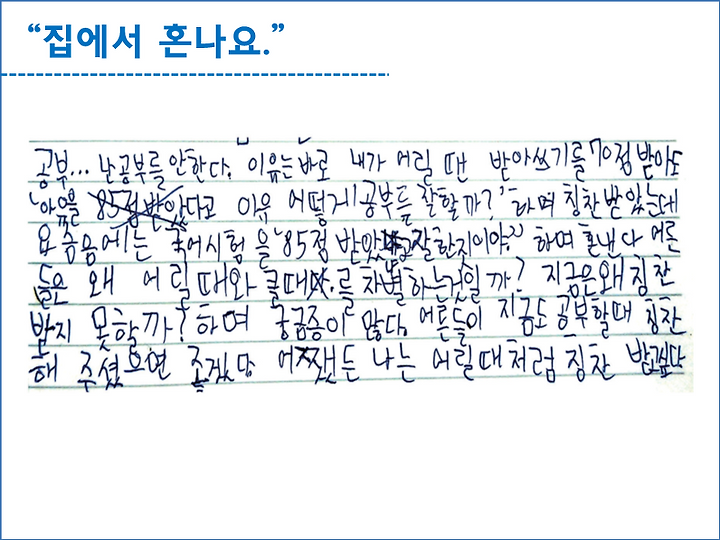 “집에서 혼나요.”
공부... 난 공부를 안한다. 이유는 바로 내가 어릴 땐 받아쓰기를 70점 받아도
다고 이유 어떻게 공부를 잘할까?' 하며 칭찬 받았는데
요즘음에는 국어시험을 '85점 받았 잘한짓이야?' 하며 혼낸다 어른
들은 왜 어릴때와 클때 를 차별하는것일까? 지금은 왜 칭찬
받지 못할까? 하며 궁금증이 많다. 어른들이 지금도 공부할때 칭찬
해 주셨으면 좋겠다. 어쨌든 나는 어릴때처럼 칭찬 받고싶다